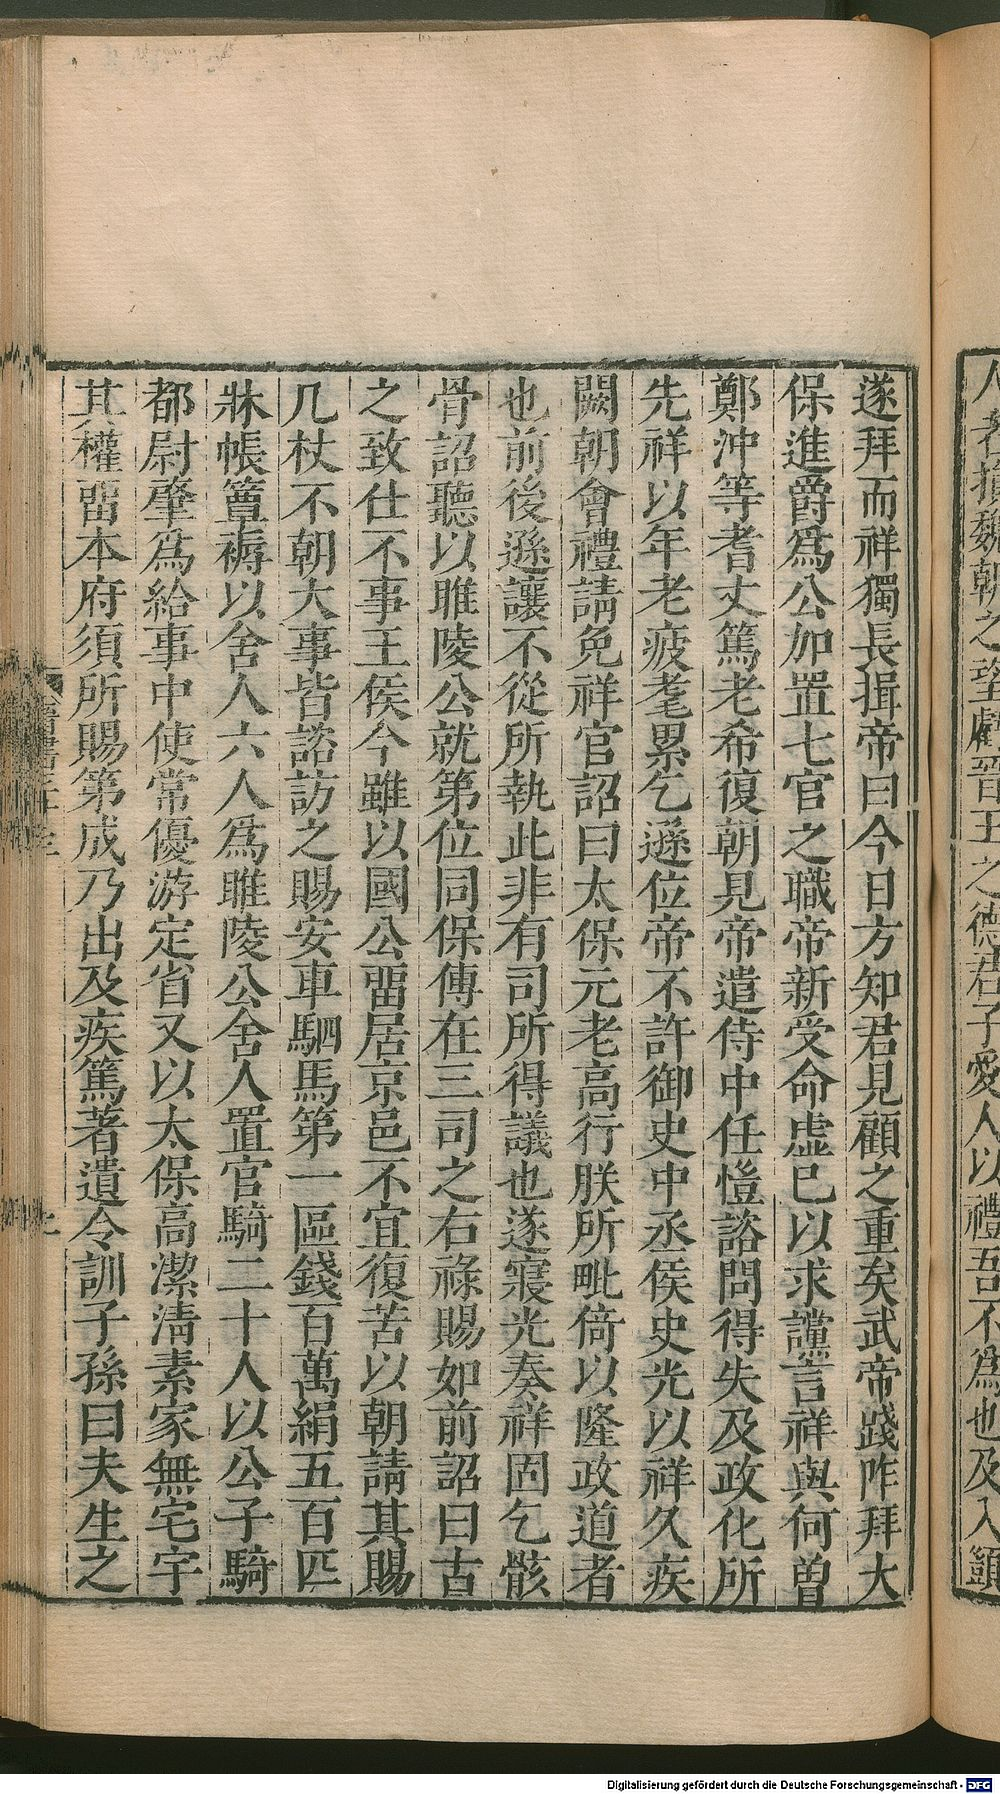 人者損魏朝之望虧晉王之德君子愛人以禮吾不爲也及入顗
遂拜而祥獨長揖帝曰今日方知君見顧之重矣武帝踐阼拜大
保進爵爲公加置七官之職帝新受命虚已以求讜言祥與何曾
鄭沖等耆丈篤老希復朝見帝遣侍中任愷諮問得失及政化所
先祥以年老疲耄累乞遜位帝不許御史中丞侯史光以祥久疾
闕朝會禮請免祥官詔曰太保元老高行朕所毗倚以隆政道者
也前後遜讓不從所執此非有司所得議也遂寢光奏祥固乞骸
骨詔聽以睢陵公就第位同保傅在三司之右祿賜如前詔曰古
之致仕不事王侯今雖以國公畱居京邑不宜復苦以朝請其賜
几杖不朝大事皆諮訪之賜安車駟馬第一區錢百萬絹五百匹
牀帳簟褥以舍人六人爲睢陵公舍人置官騎二十人以公子騎
都尉肇爲給事中使常優游定省又以太保高潔清素家無宅宇
其權畱本府須所賜第成乃出及疾篤著遺令訓子孫曰夫生之
Digitalisierung gefördert durch die Deutsche Forschungsgemeinschaft - DFG